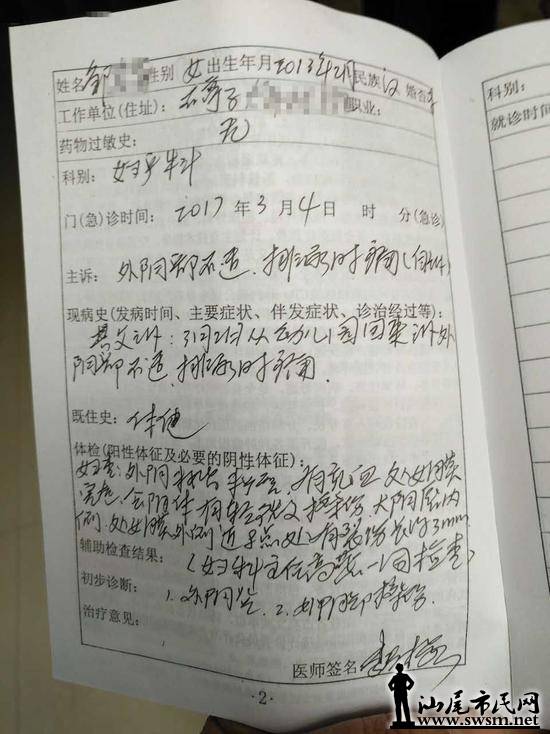 姓名 邹 性别 女 出生年月 2013年2月 民族 汉 婚否
工作单位(住址): 石 子 职业:
药物过敏史: 无
科别: 妇产科
门(急)诊时间: 2017 年 3 月 4 日 时 分(急诊)
主诉: 外阴部不适、排尿时疼痛
现病史(发病时间、主要症状、伴发症状、诊治经过等):
其父诉: 3月2日从幼儿园回来诉外
阴部不适、排尿时疼痛.
既住史: 体健
体检(阳性体征及必要的阴性体征):
妇查: 外阴 充血 处女膜
完整, 会阴体有轻微擦伤 大阴唇内
侧、处女膜外侧近 点处有裂伤长约3mm.
辅助检查结果: (妇科主任 一同检查)
初步诊断: 1. 外阴炎. 2. 外阴部擦伤.
治疗意见:
医师签名
·2·
科别:
就诊时间
汕尾市民网
www.swsm.net